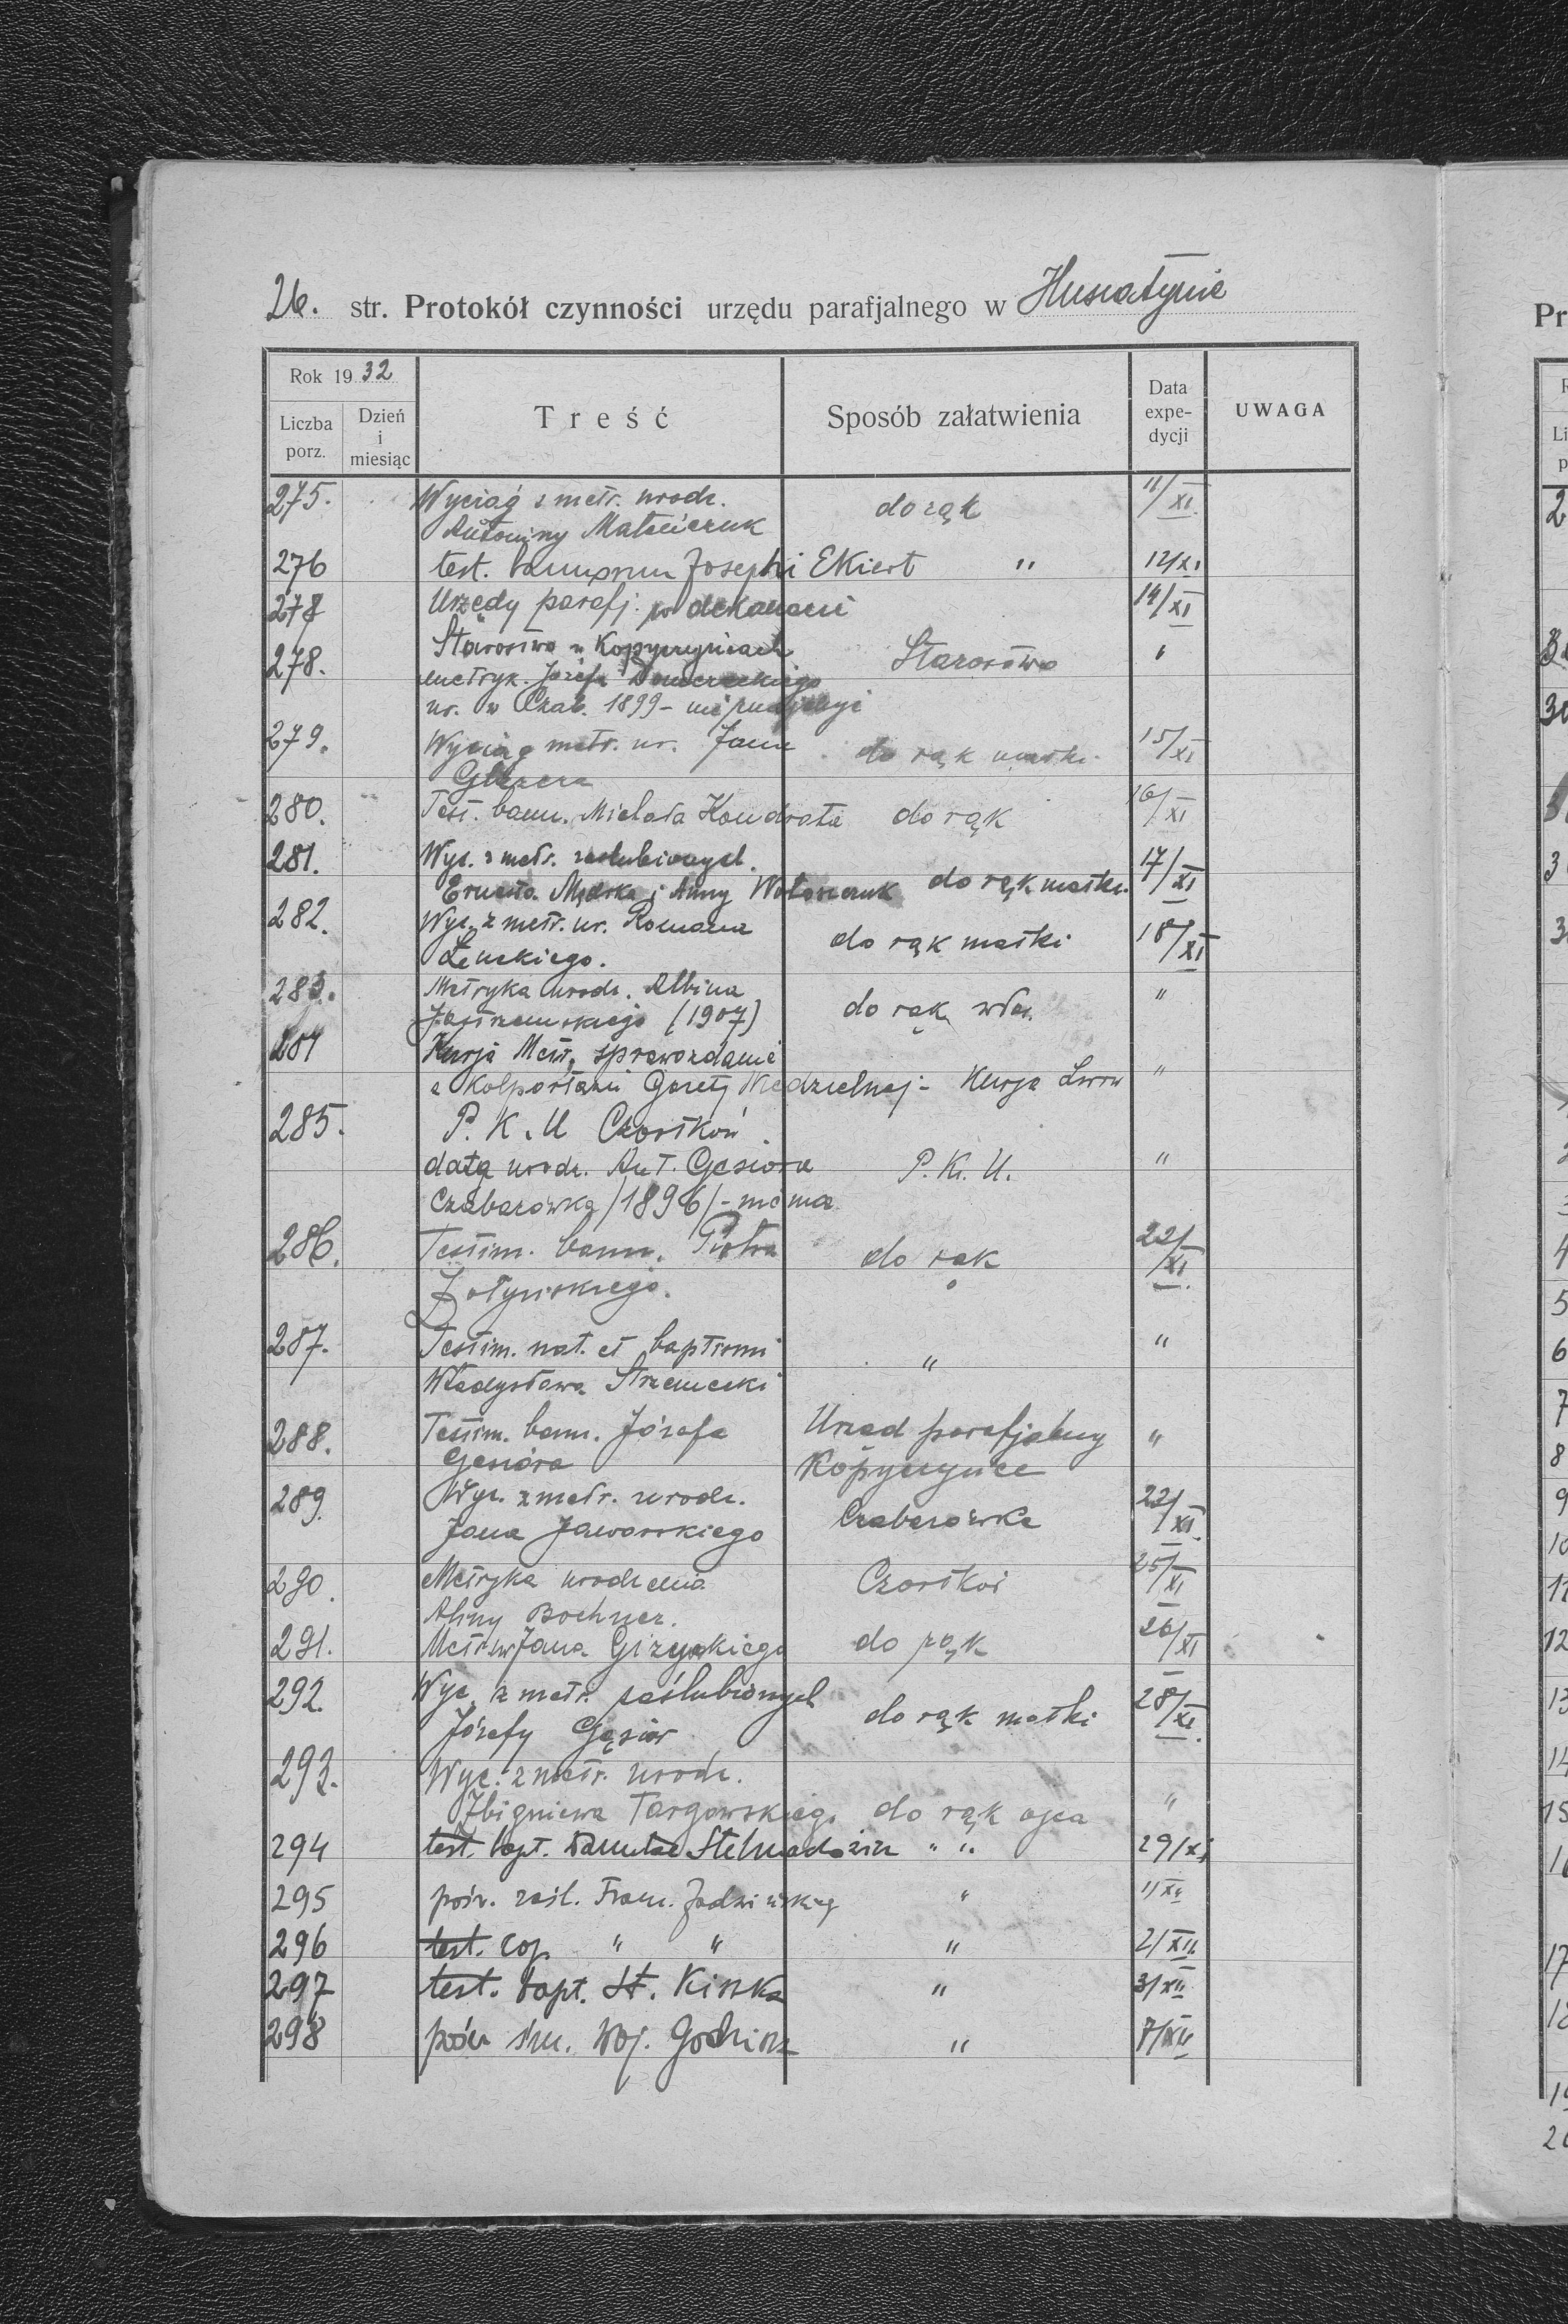 26. str. Protokół czynności urzędu parafjalnego w Husiatynie
Rok 1932
Liczba porz.
Dzień i miesiąc
Treść
Sposób załatwienia
Data expedycji
UWAGA
275. Wyciąg z metr. urodz. do rąk 11/XI.
Antoniny
276 test. bannorum Josephi Ekiert " 12/XI
277 Urzędy parafj. w dekanacie 14/XI
278. Starostwo w Kopyczyńcach Starostwo "
metryk. Józefa
ur. w Czab. 1899 - nie
279. Wyciąg metr. ur. Jana do rąk matki. 15/XI
280. Test. bann. Michała Kondrata do rąk 16/XI
281. Wyc. z metr. zaślubionych. 17/XI
Ernesta i Anny Wołoszczuk do rąk matki.
282. Wyc. z metr. ur. Romana do rąk matki 18/XI
283. Metryka urodz. Albina do rąk włas. "
Jastrzemskiego (1907)
284 Kurja Metr. sprawozdanie
z kolportażu Gazety Niedzielnej - Kurja Lwów "
285. P. K. U Czortków
data urodz. Ant. Gąsiora P. K. U. "
Czabarówka /1896/ - niema
286. Testim. bann. Piotra do rąk 22/XI.
Żołyńskiego.
287. Testim. nat. et baptismi " "
Władysława
288. Testim. bann. Józefa Urząd parafjalny "
Gąsiora Kopyczyńce
289. Wyc. z metr. urodz. Czabarówka 22/XI.
Jana Jaworskiego
290. Metryka urodzenia Czortków 25/XI
Anny Bochner.
291. Metr. ur Jana Giżyńskiego do rąk 26/XI
292. Wyc. z metr. zaślubionych do rąk matki 28/XI.
Józefy Gąsior
293. Wyc. z metr. urodz.
Zbigniewa Targowskiego do rąk ojca "
294 test. bapt. Danutae " " 29/XI
295 pośw. zaśl. Franc. " 1/XII
296 test. cop. " " " 2/XII
297 test. bapt. St. " 3/XII
298 pośw śm. Woj. " 7/XII